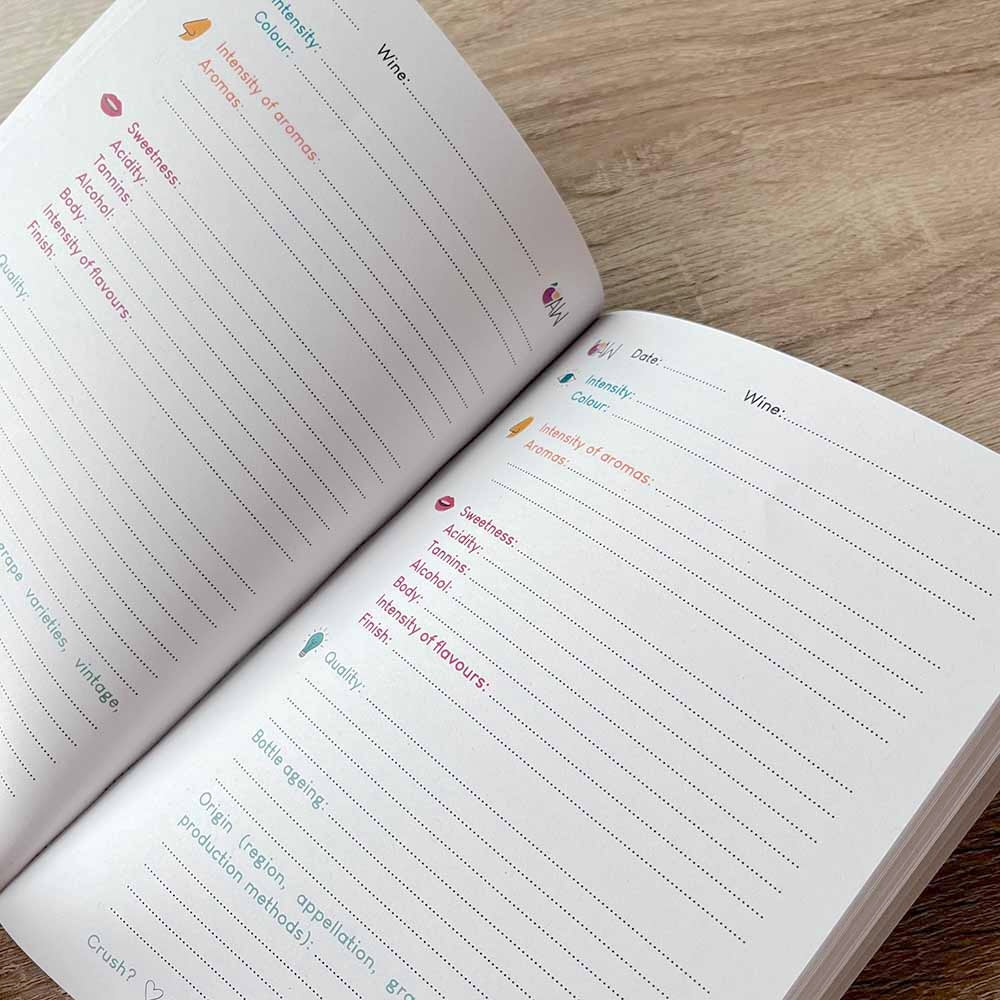 Wine:
Intensity:
Colour:
Intensity of aromas:
Aromas:
Sweetness:
Acidity:
Tannins:
Alcohol:
Body:
Intensity of flavours:
Finish:
Quality:
grape varieties, vintage,
AW
AW Date: Wine:
Intensity:
Colour:
Intensity of aromas:
Aromas:
Sweetness:
Acidity:
Tannins:
Alcohol:
Body:
Intensity of flavours:
Finish:
Quality:
Bottle ageing:
Origin (region, appellation, gra
production methods):
Crush? ♡